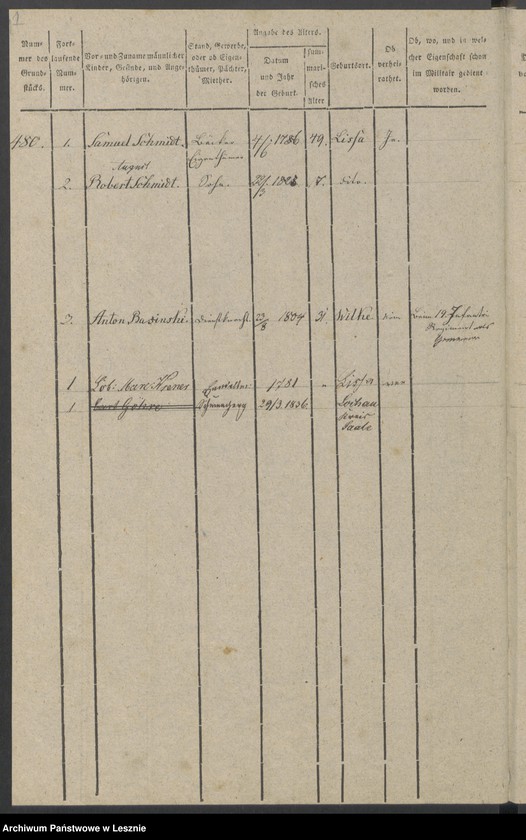 Num-
mer des
Grund-
stücks.
Fort-
laufende
Num-
mer.
Vor- und Zuname männlicher
Kinder, Gesinde, und Ange-
hörigen.
Stand, Gewerbe,
oder ob Eigen-
thümer, Pächter,
Miether.
Angabe des Alters.
Datum
und Jahr
der Geburt.
sum-
mari-
sches
Alter
Geburtsort.
Ob
verhei-
rathet.
Ob, wo, und in wel-
cher Eigenschaft schon
im Militair gedient
worden.
480. 1. Samuel Schmidt. 4/6 1786 49. Lissa Ja.
Eigenthümer
August
2. Robert Schmidt. Sohn. 7. dito.
3. Anton Dienstknecht 23/8 1804 31. Wilke beim 19. Infanterie
Regiment als
Gemeiner
1 1781 Lissa
1 Carl Göhre 29/3. 1836. Lochau
Kreis
Saale
Archiwum Państwowe w Lesznie